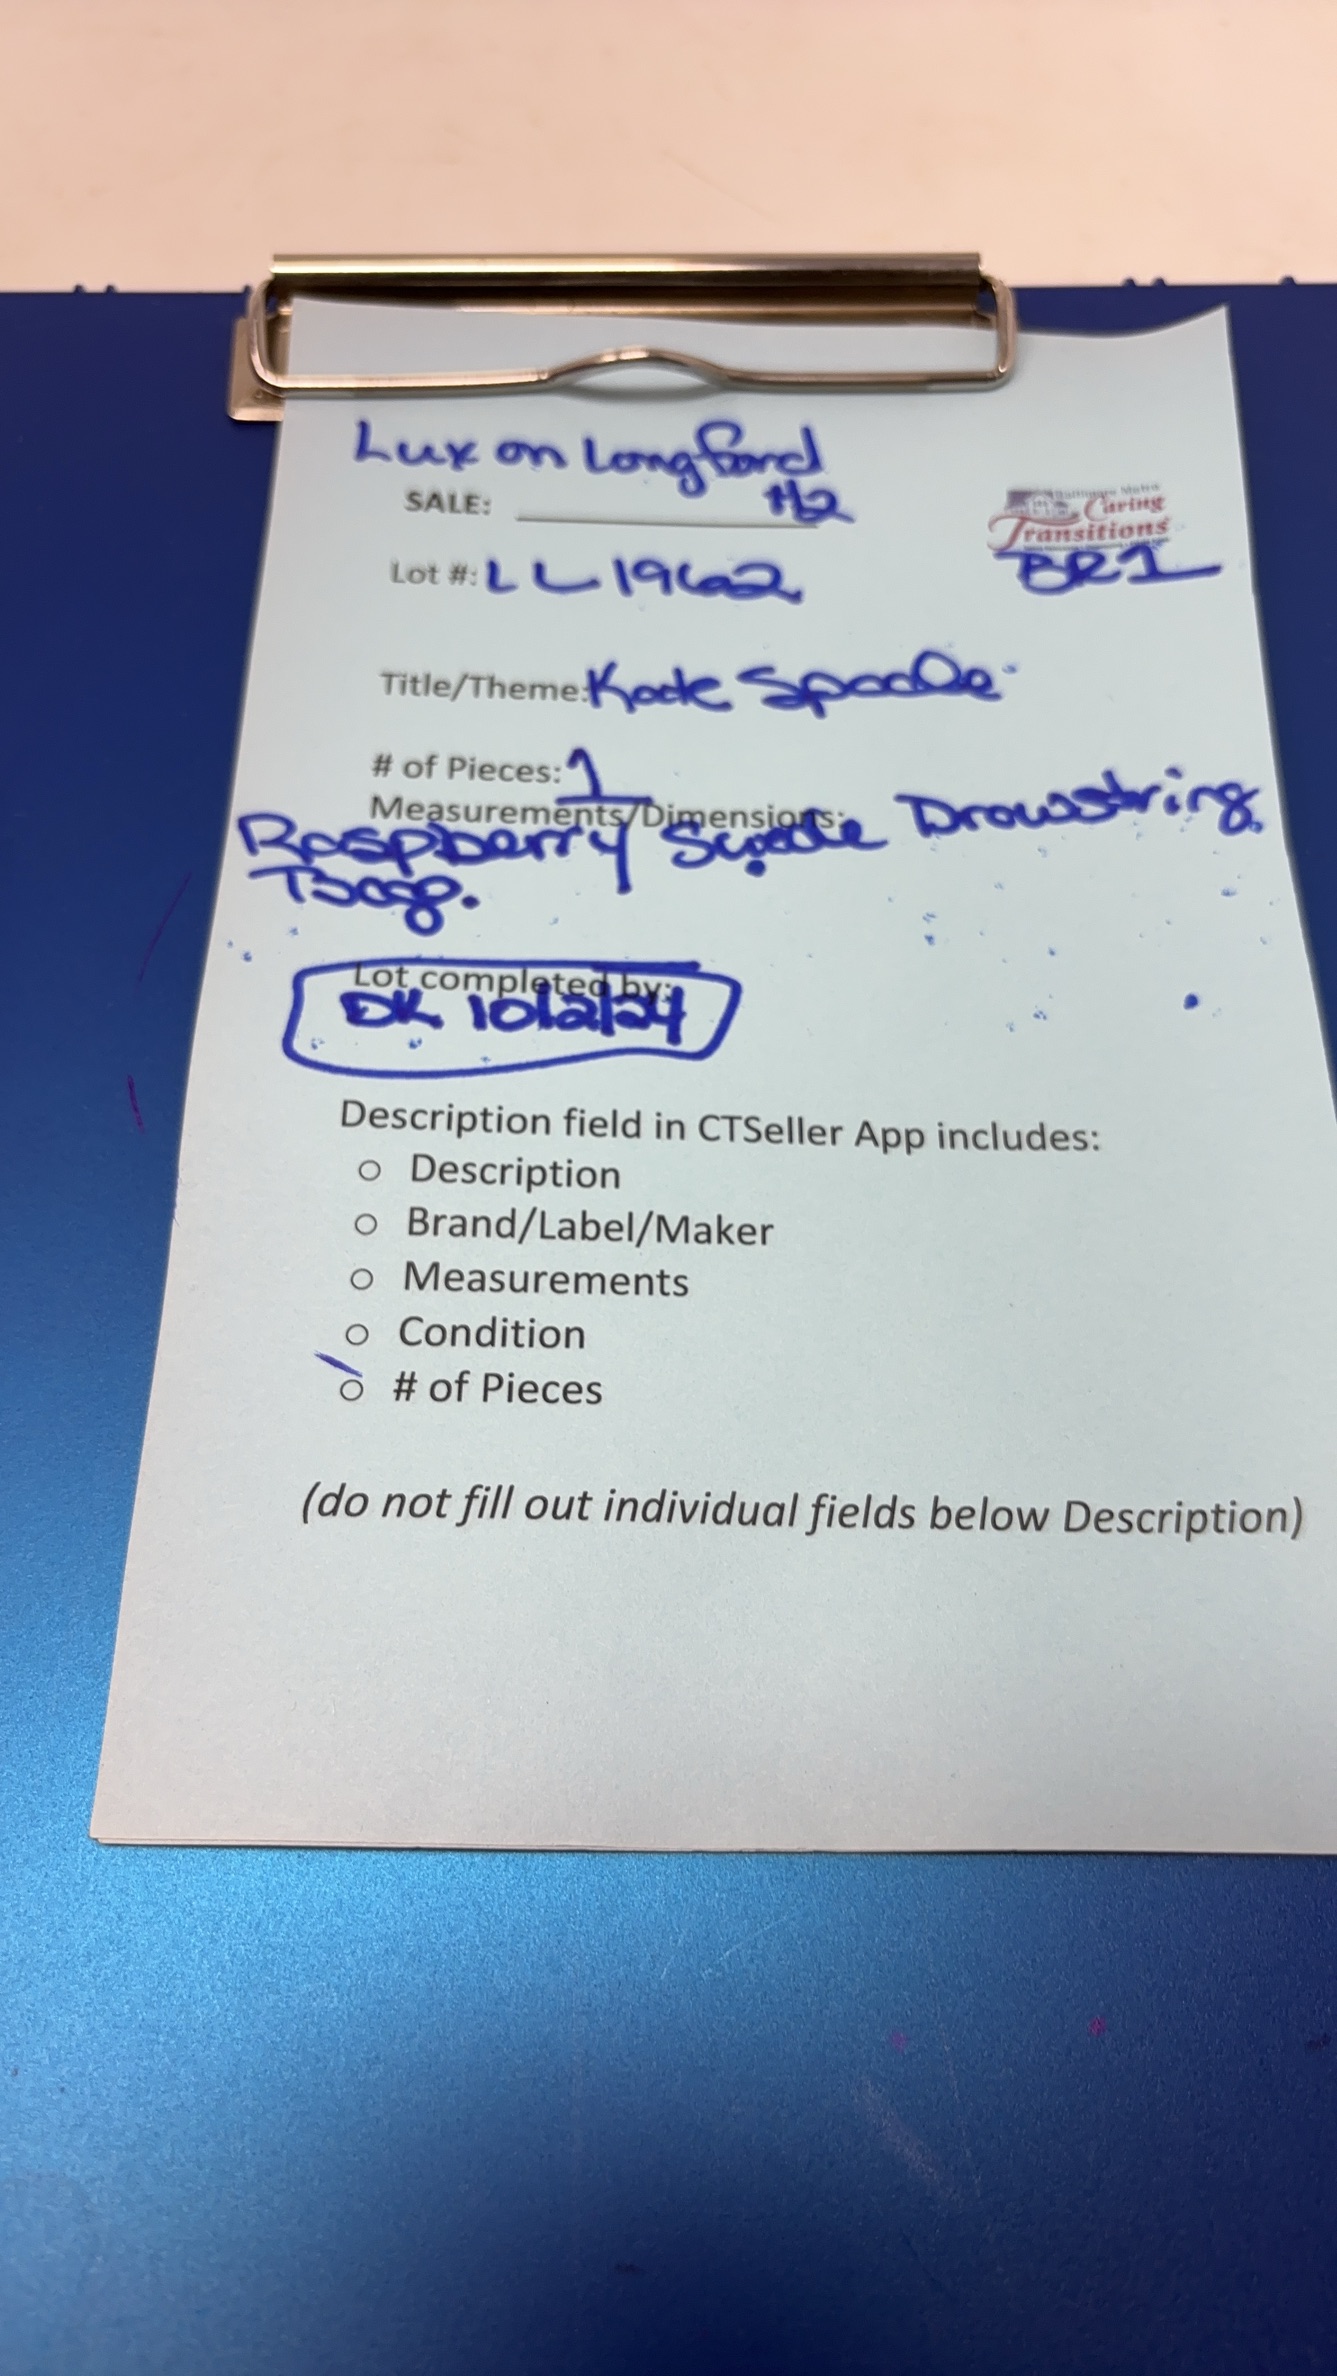 Lux on Longford
SALE: #2
Caring
Transitions
Lot #: LL1962
BR1
Title/Theme: Kate Spade
# of Pieces: 1
Measurements/Dimensions:
Raspberry Suede Drawstring
Bag.
Lot completed by:
DK 10/2/24
Description field in CTSeller App includes:
o Description
o Brand/Label/Maker
o Measurements
o Condition
o # of Pieces
(do not fill out individual fields below Description)